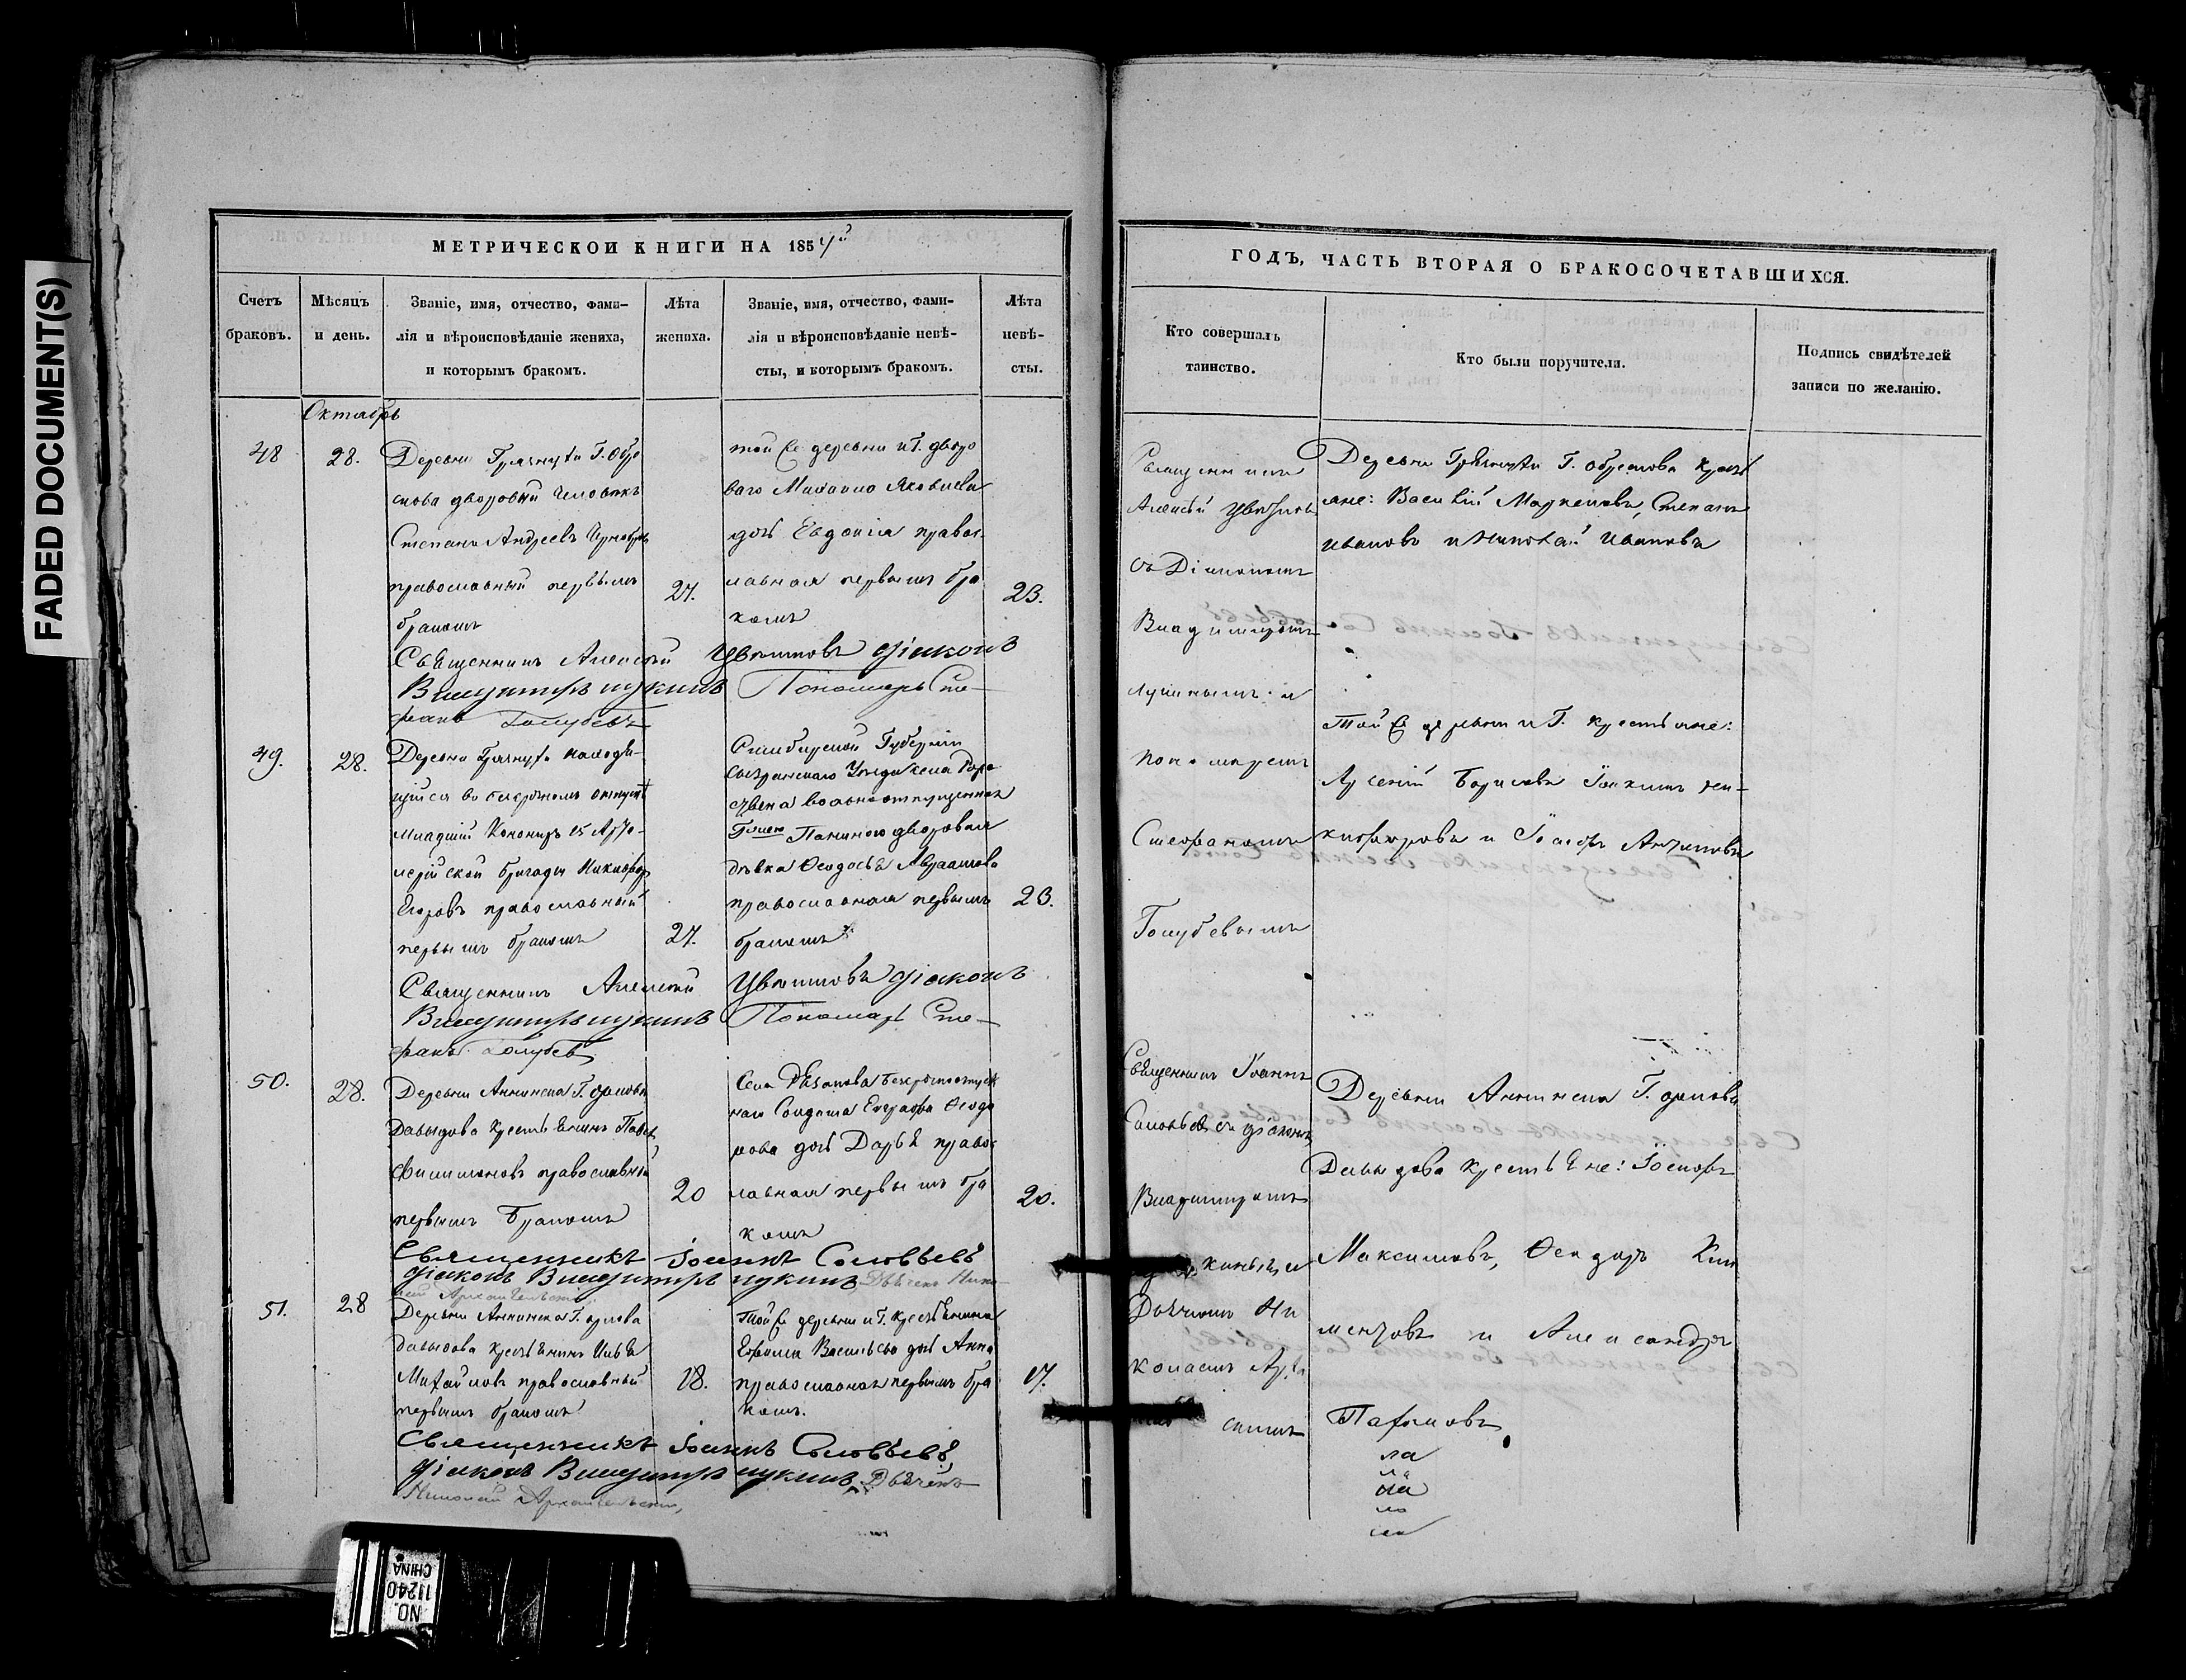 FADED DOCUMENT(S)
МЕТРИЧЕСКОЙ КНИГИ НА 1854й
Счетъ браковъ.
Мѣсяцъ и день.
Званіе, имя, отчество, фами-
лія и вѣроисповѣданіе жениха,
и которымъ бракомъ.
Лѣта
жениха.
Званіе, имя, отчество, фами-
лія и вѣроисповѣданіе невѣ-
сты, и которымъ бракомъ.
Лѣта
невѣ-
сты.
Октябрь
48
28.
Деревни Грязнухи Г. Обре
скова дворовый человѣкъ
Степанъ Андреевъ
православный первымъ
бракомъ
27.
той же деревни и Г. дворо
ваго Михаила Яковлева
дочь Евдокія правос
лавная первымъ бра
комъ
23.
Священникъ Алексѣй Цвѣтковъ діаконъ
Владимиръ Лукинъ Пономарь Сте-
фанъ Голубевъ
49.
28.
Деревни Грязнухи находя-
щійся въ безсрочномъ отпуску
младшій Канониръ 15 Арти-
лерійской бригады Никифоръ
Егоровъ православный
первымъ бракомъ
27.
Симбирской Губерніи
Сызранскаго Уѣзда села
вольноотпущенная
Паниною дворовая
дѣвка Ѳеодосья Абрамова
православная первымъ
бракомъ
23.
Священникъ Алексѣй Цвѣтковъ діаконъ
Владимиръ Лукинъ Пономарь Сте-
фанъ Голубевъ
50.
28.
Деревни Анненкова Г. Орлова
Давыдова крестьянинъ Павелъ
Филимоновъ православный
первымъ бракомъ
20
Села безсрочноотпуск
наго Солдата Ѳеодо
рова дочь Дарья правос
лавная первымъ бра
комъ
20.
Священникъ Іоаннъ Соловьевъ
діаконъ Владимиръ Лукинъ Дьячекъ Нико-
лай Архангельскій
51.
28
Деревни Анненкова Г. Орлова
Давыдова крестьянинъ Илья
Михайловъ православный
первымъ бракомъ
18.
той же деревни и Г. крестьянина
Ефима Васильева дочь Анна
православная первымъ бра
комъ.
17.
Священникъ Іоаннъ Соловьевъ
діаконъ Владимиръ Лукинъ Дьячекъ
Николай Архангельскій
ГОДЪ, ЧАСТЬ ВТОРАЯ О БРАКОСОЧЕТАВШИХСЯ.
Кто совершалъ
таинство.
Кто были поручители.
Подпись свидѣтелей
записи по желанію.
Священникъ
Алексѣй Цвѣтковъ
съ Діакономъ
Владимиромъ
Лукинымъ и
пономаремъ
Стефаномъ
Голубевымъ
Деревни Грязнухи Г. Обрескова кресть
яне: Василій Маркеловъ, Степанъ
Ивановъ и Николай Ивановъ
той же деревни и Г. крестьяне:
Арсеній Борисовъ Іоакимъ Ни-
кифоровъ и Іосифъ Антиповъ
Священникъ Іоаннъ
Соловьевъ съ діакономъ
Владимиромъ
Дьячкомъ Ни
колаемъ Арха
скимъ
Деревни Анненкова Г. Орлова
Давыдова крестьяне: Іосифъ
Максимовъ, Ѳеодоръ Кли
ментовъ и Александръ
Пахомовъ
NO.
11240
CHINA